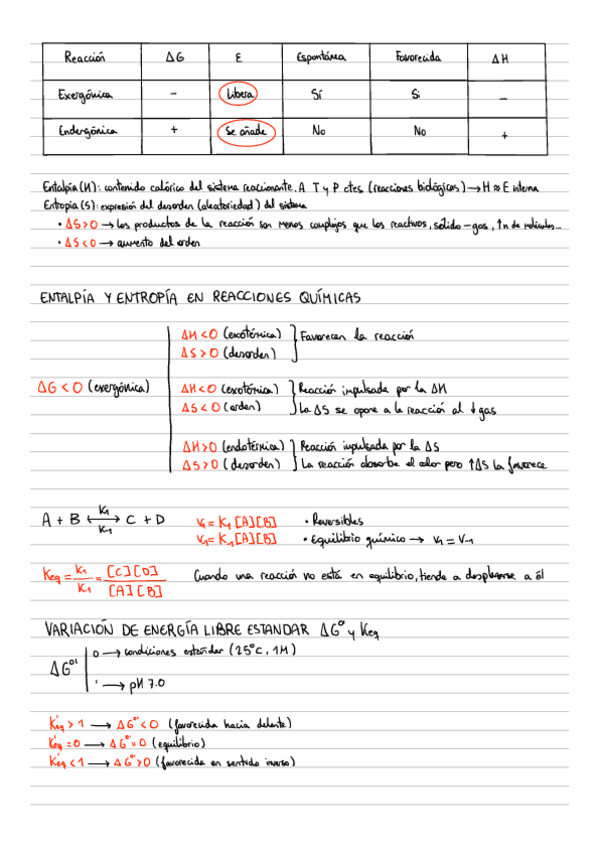 Reacción ΔG E Espontánea Favorecida ΔH
Exergónica - Libera Sí Sí -
Endergónica + Se añade No No +
Entalpía (H): contenido calórico del sistema reaccionante. A T y P ctes (reacciones biológicas) → H ≈ E interna
Entropía (S): expresión del desorden (aleatoriedad) del sistema
• ΔS>0 → los productos de la reacción son menos complejos que los reactivos, sólido - gas, ↑n de moléculas...
• ΔS<0 → aumento del orden
ENTALPÍA Y ENTROPÍA EN REACCIONES QUÍMICAS
ΔH<0 (exotérmica) } Favorecen la reacción
ΔS>0 (desorden)
ΔG<0 (exergónica) ΔH<0 (exotérmica) } Reacción impulsada por la ΔH
ΔS<0 (orden) La ΔS se opone a la reacción al ↓gas
ΔH>0 (endotérmica) } Reacción impulsada por la ΔS
ΔS>0 (desorden) La reacción absorbe el calor pero ↑ΔS la favorece
A + B ⟷ C + D K1 K-1 V1 = K1 [A][B] • Reversibles
V-1 = K-1 [A][B] • Equilibrio químico → V1 = V-1
Keq = K1/K-1 = [C][D]/[A][B] Cuando una reacción no está en equilibrio, tiende a desplazarse a él
VARIACIÓN DE ENERGÍA LIBRE ESTANDAR ΔG°' y Keq
ΔG°' o → condiciones estándar (25°C, 1M)
' → pH 7.0
K'eq > 1 → ΔG°' < 0 (favorecida hacia delante)
K'eq = 0 → ΔG°' = 0 (equilibrio)
K'eq < 1 → ΔG°' > 0 (favorecida en sentido inverso)